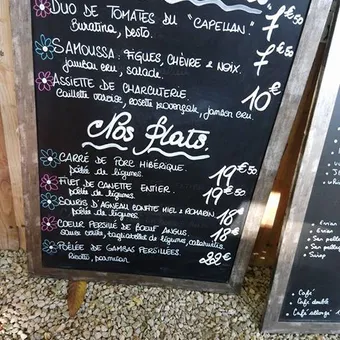 DUO DE TOMATES DU "CAPELLAN". 7€50
Buratina, pesto.
SAMOUSSA: FIGUES, CHÈVRE & NOIX. 7€50
jambon cru, salade.
ASSIETTE DE CHARCUTERIE 10€
Caillette ardoise, rosette provençale, jambon cru
Nos plats.
CARRÉ DE PORC HIBÉRIQUE. 19€50
poêlée de légumes.
FILET DE CANETTE ENTIER. 19€50
poêlée de légumes.
SOURIS D'AGNEAU CONFITE MIEL & ROMARIN 18€
poêlée de légumes
COEUR PERSILLÉ DE BOEUF ANGUS. 18€
tagliatelles de légumes,
POÊLÉE DE GAMBAS PERSILLÉES. 22€
Risotto, parmesan
Evian
Evian
San pelle
San pelleg
Sirop
Café
Café double
Café allongé